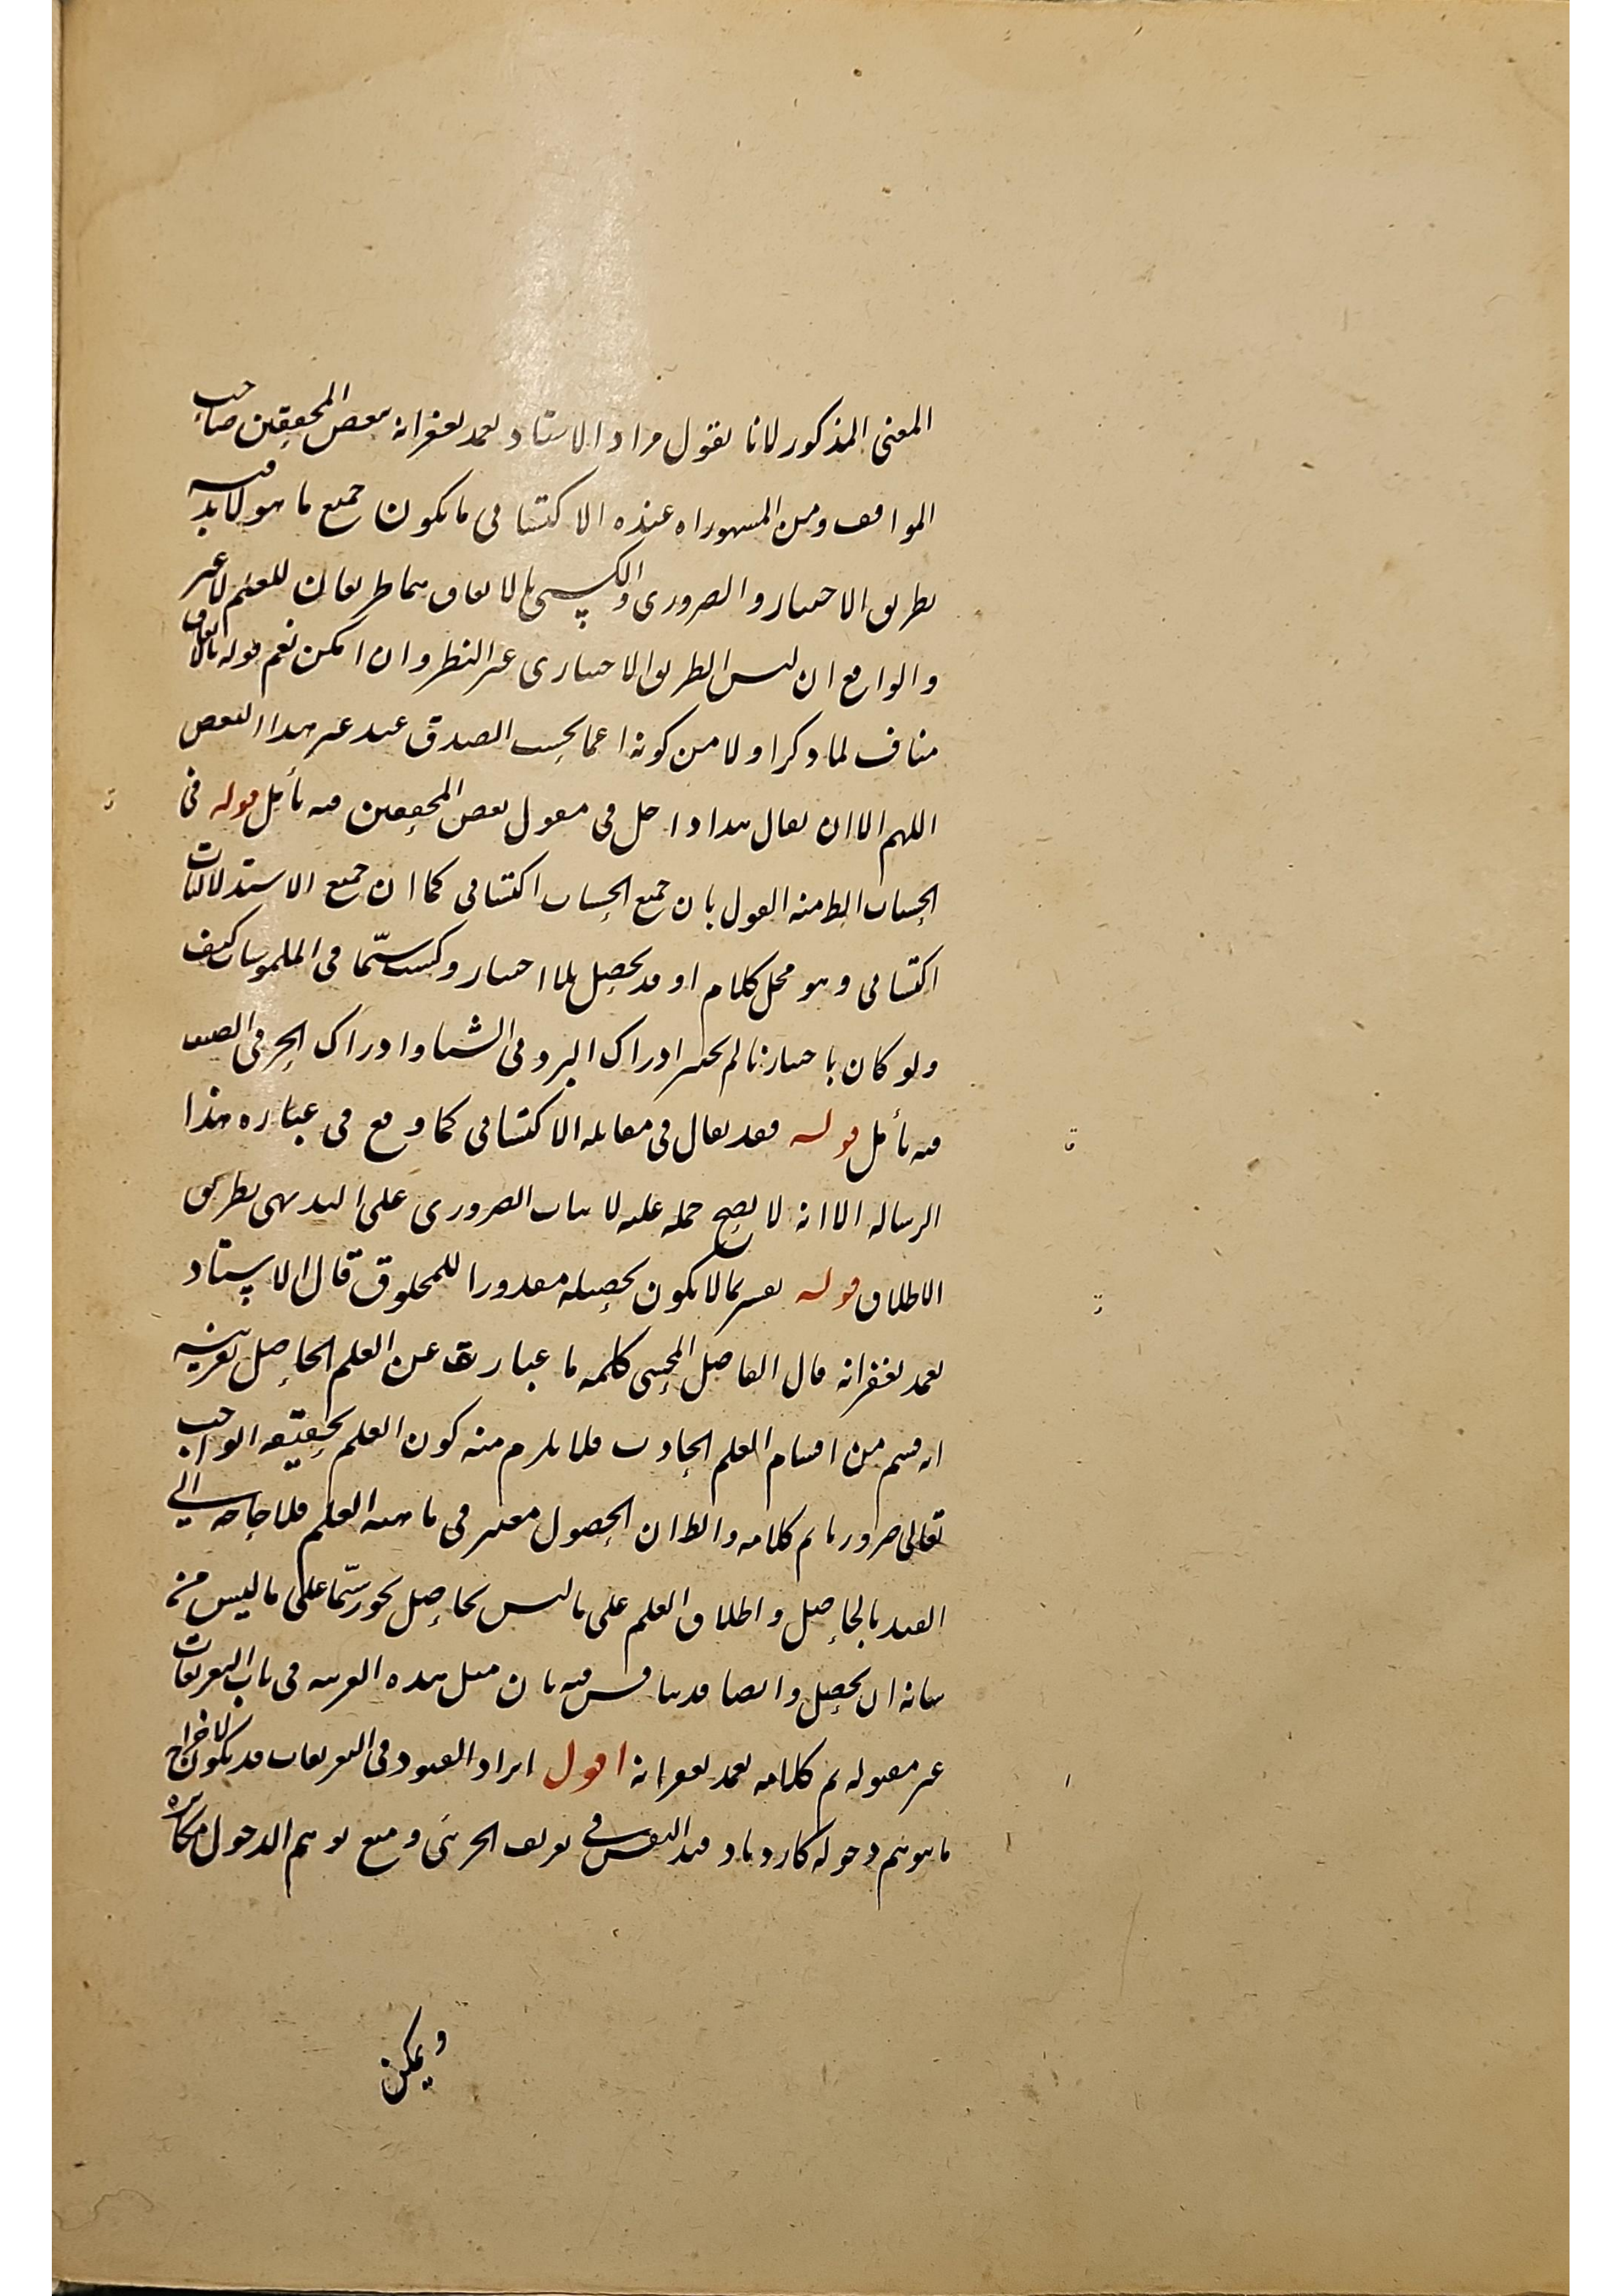 المعنى المذكور لانا نقول مراد الاستاد تغمد بغفرانه ببعض المحققين صاحب
المواقف ومن المشهور ان عنده الاكتسابى ما يكون جميع ما هو لا بد فيه
بطريق الاختيار والضرورى والكسبى بالاتفاق هما طريقان للعلم لا غير
والواقع ان ليس الطريق الاختيارى غير النظر وان امكن نعم قوله بالاتفاق
مناف لما ذكر اولا من كونه اعم بحسب الصدق عند غير هذا البعض
اللهم الا ان يقال هذا داخل فى مقول بعض المحققين فيه تأمل قوله فى
الحسيات الظ منه القول بان جميع الحسيات اكتسابى كما ان جميع الاستدلاليات
اكتسابى وهو محل كلام او قد يحصل بلا اختيار وكسب سيّما فى الملموسات كيف
ولو كان باختيارنا لم نختر ادراك البرد فى الشتا وادراك الحر فى الصيف
فيه تأمل قوله فقد يقال فى مقابلة الاكتسابى كما وقع فى عبارة هذا
الرسالة الا انه لا يصح حمله عليه لاثبات الضرورى على البديهى بطريق
الاطلاق قوله يفسر بما لا يكون تحصيله مقدورا للمخلوق قال الاستاد
تغمد بغفرانه قال الفاضل المحشى كلمة ما عبارت عن العلم الحاصل بقرينه
انه قسم من اقسام العلم الحادث فلا يلزم منه كون العلم بحقيقة الواجب
تعالى ضروريا تم كلامه والظ ان الحصول معتبر فى ماهية العلم فلا حاجة الى
القيد بالحاصل واطلاق العلم على ما ليس بحاصل تجوز سيّما على ما ليس من
شانه ان يحصل وايضا قد يناقش فيه بان مثل هذه القرينة فى باب التعريفات
غير مقبولة تم كلامه تغمد بغفرانه اقول ايراد القيود فى التعريفات قد يكون لاخراج
ما يوهم دخوله كازدياد قيد النفس فى تعريف الجزئى ومنع توهم الدخول مكابرة
ويمكن